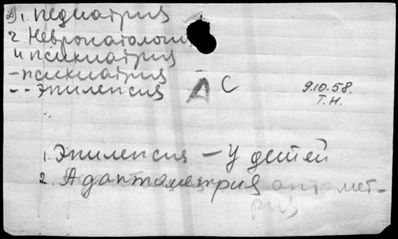 1. педиатрия
2 Невропатология
и психиатрия
- психиатрия
-- эпилепсия А С 9.10.58.
Т.Н.
1. Эпилепсия — у детей
2. Адаптометрия